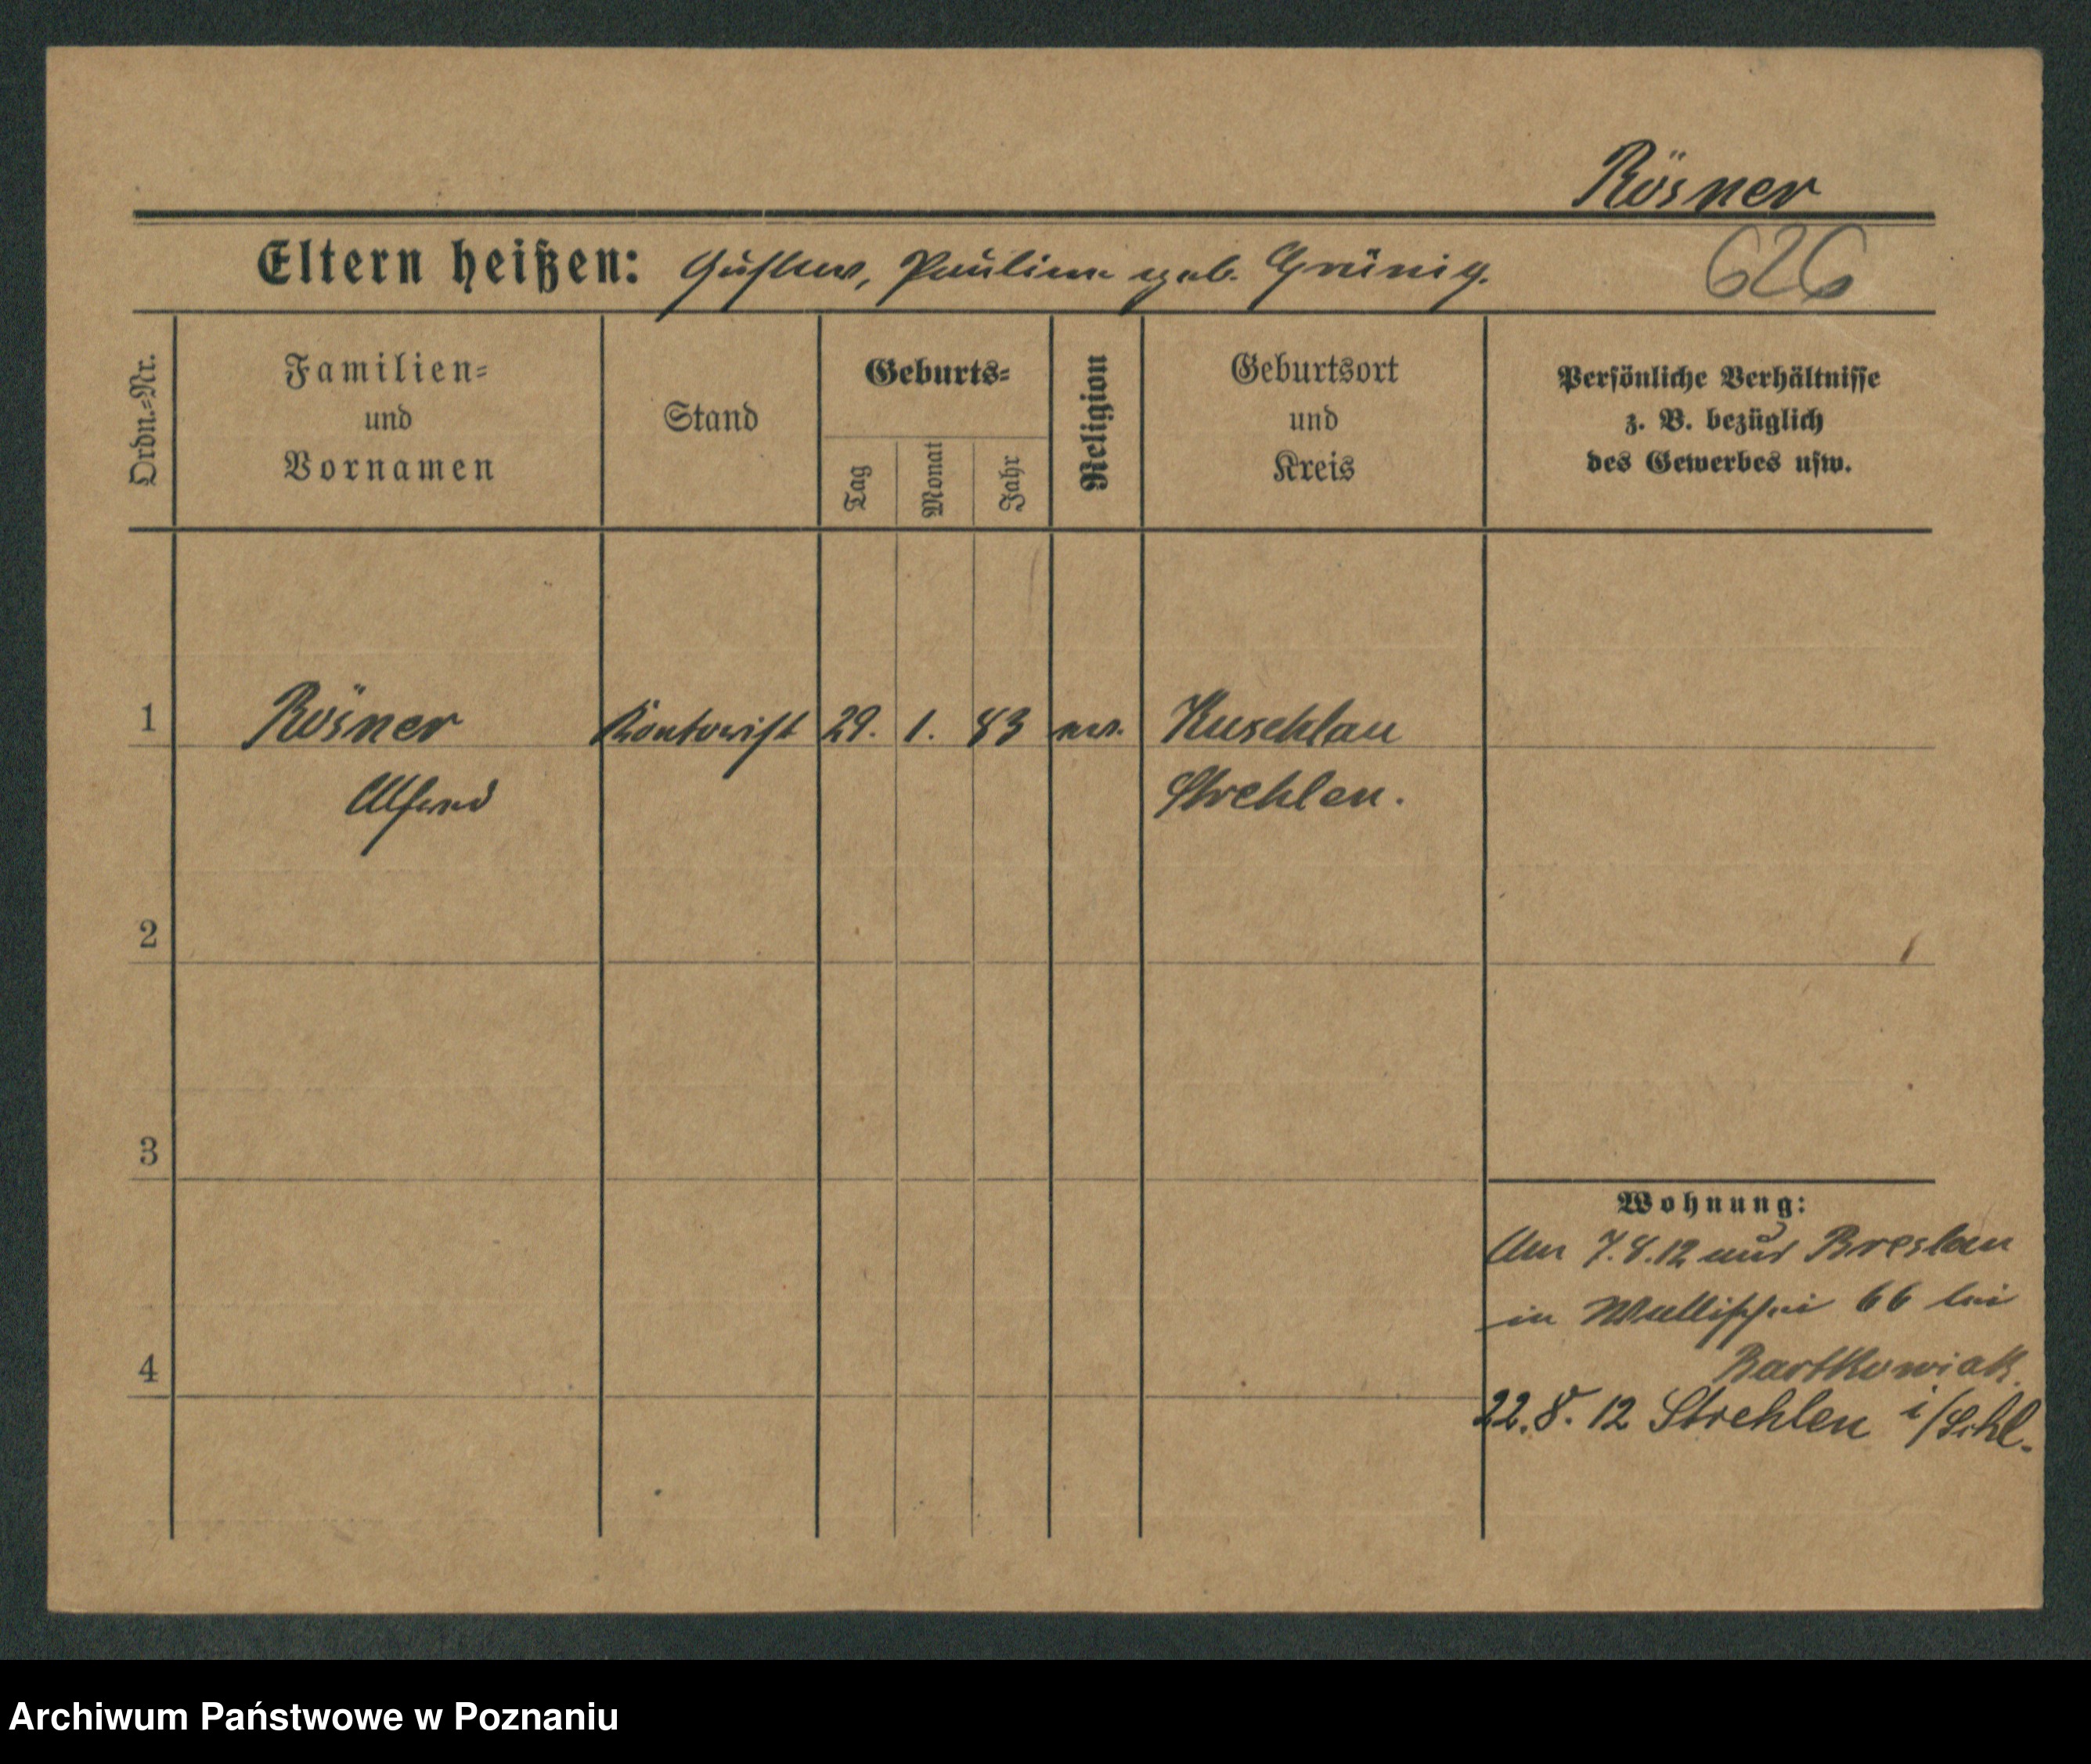 Rösner
Eltern heißen: Gustav, Pauline geb. Grünig.
626
Ordn.=Nr.
Familien=
und
Vornamen
Stand
Geburts=
Tag
Monat
Jahr
Religion
Geburtsort
und
Kreis
Persönliche Verhältnisse
z. B. bezüglich
des Gewerbes usw.
1 Rösner Kontorist 29. 1. 83 ev. Kuschlau
Alfred Strehlen.
2
3
Wohnung:
Am 7.8.12 aus Breslau
in Wallischei 66 bei
Bartkowiak.
4
22.8.12 Strehlen i/Schl.
Archiwum Państwowe w Poznaniu